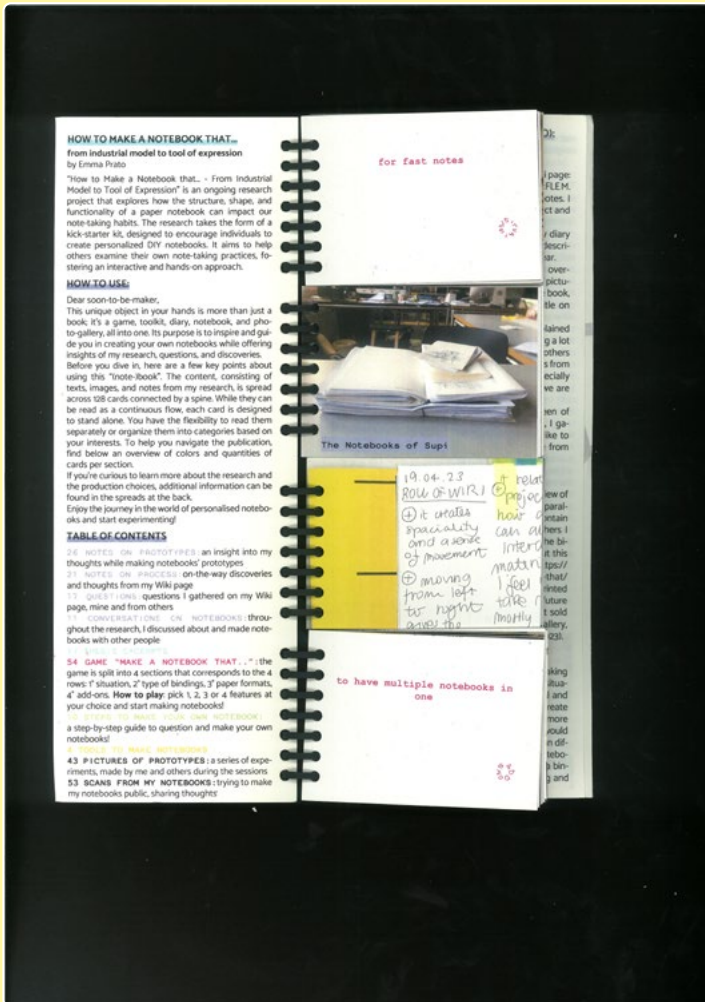 HOW TO MAKE A NOTEBOOK THAT...
from industrial model to tool of expression
by Emma Prato
"How to Make a Notebook that... - From Industrial
Model to Tool of Expression" is an ongoing research
project that explores how the structure, shape, and
functionality of a paper notebook can impact our
note-taking habits. The research takes the form of a
kick-starter kit, designed to encourage individuals to
create personalized DIY notebooks. It aims to help
others examine their own note-taking practices, fo-
stering an interactive and hands-on approach.
HOW TO USE:
Dear soon-to-be-maker,
This unique object in your hands is more than just a
book; it's a game, toolkit, diary, notebook, and pho-
to-gallery, all into one. Its purpose is to inspire and gui-
de you in creating your own notebooks while offering
insights of my research, questions, and discoveries.
Before you dive in, here are a few key points about
using this "(note-)book". The content, consisting of
texts, images, and notes from my research, is spread
across 128 cards connected by a spine. While they can
be read as a continuous flow, each card is designed
to stand alone. You have the flexibility to read them
separately or organize them into categories based on
your interests. To help you navigate the publication,
find below an overview of colors and quantities of
cards per section.
If you're curious to learn more about the research and
the production choices, additional information can be
found in the spreads at the back.
Enjoy the journey in the world of personalised notebo-
oks and start experimenting!
TABLE OF CONTENTS
26 NOTES ON PROTOTYPES: an insight into my
thoughts while making notebooks' prototypes
21 NOTES ON PROCESS: on-the-way discoveries
and thoughts from my Wiki page
QUESTIONS: questions I gathered on my Wiki
page, mine and from others
11 CONVERSATIONS ON NOTEBOOKS: throu-
ghout the research, I discussed about and made note-
books with other people
54 GAME "MAKE A NOTEBOOK THAT..": the
game is split into 4 sections that corresponds to the 4
rows: 1° situation, 2° type of bindings, 3° paper formats,
4° add-ons. How to play: pick 1, 2, 3 or 4 features at
your choice and start making notebooks!
STEPS TO MAKE YOUR OWN NOTEBOOK:
a step-by-step guide to question and make your own
notebooks!
TOOLS TO MAKE NOTEBOOKS
43 PICTURES OF PROTOTYPES: a series of expe-
riments, made by me and others during the sessions
53 SCANS FROM MY NOTEBOOKS: trying to make
my notebooks public, sharing thoughts
for fast notes
The Notebooks of Supi
19.04.23
ROLL OF WIRI
it creates
spaciality
and a sense
of movement
moving
from left
to right
gives the
it relat
projec
how
can
inter
I feel
take
mostly
to have multiple notebooks in
one
page:
FLEM.
otes. I
ct and
diary
descri-
ar.
over-
pictu-
book,
tle on
lained
g a lot
others
s from
ecially
we are
een of
, I ga-
like to
from
iew of
paral-
ontain
hers I
he bi-
it this
tps://
that/
rinted
future
t sold
allery,
023).
aking
situa-
l and
reate
more
would
n dif-
tebo-
a bin-
g and